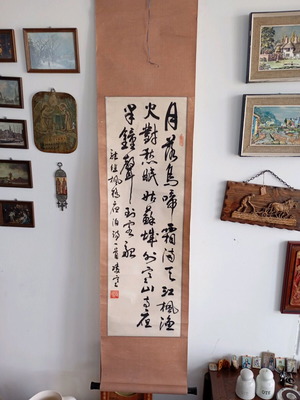 月落烏啼霜滿天江楓漁
火對愁眠姑蘇城外寒山寺夜
半鐘聲到客船
張繼楓橋夜泊詩一首